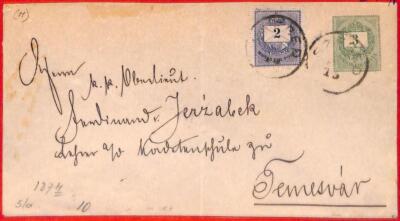 (M)
2
3
Herrn
k.k. Oberlieut.
Ferdinand v. Jeržabek
Lehrer a/o Kadetenschule zu
Temesvár
1874
10